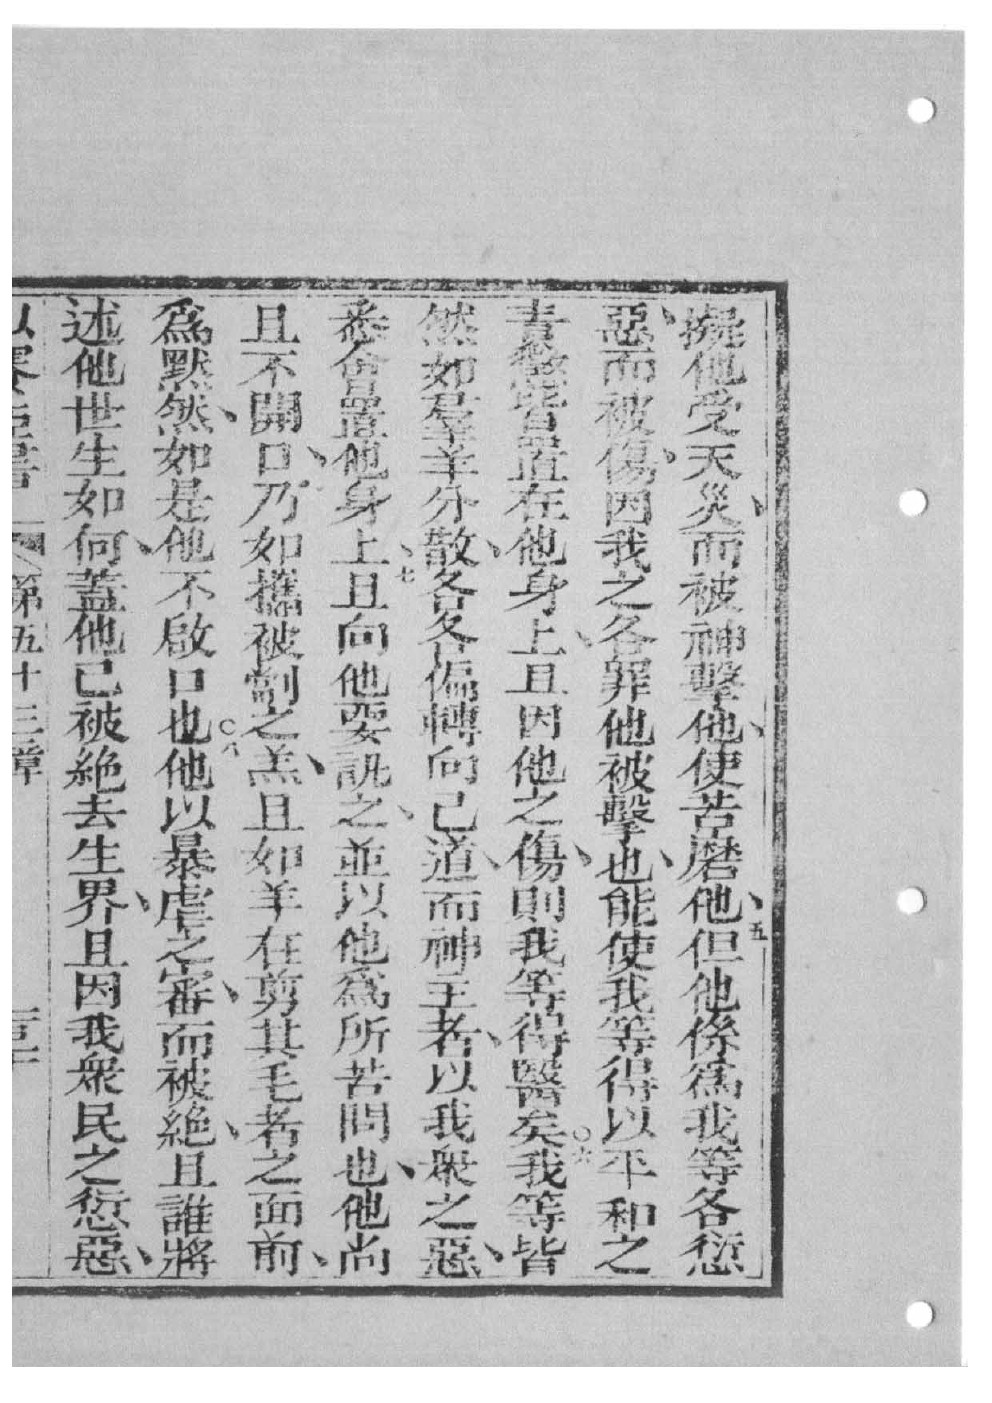 擬他受天災、而被神擊他、使苦磨他、五但他係爲我等各愆
惡、而被傷、因我之各罪他被擊也、能使我等得以平和之
責懲皆置在他身上、且因他之傷、則我等得醫矣○六我等皆
然如羣羊分散、各各偏轉向己道、而神王者、以我衆之惡、
悉會置他身上、七且向他耍訊之、並以他爲所苦問也、他尚
且不開口、乃如攜被劏之羔、且如羊在剪其毛者之面前、
爲默然、如是他不啟口也○八他以暴虐之審、而被絕、且誰將
述他世生如何、蓋他已被絕去生界、且因我衆民之愆惡、
以賽亞書 第五十三章